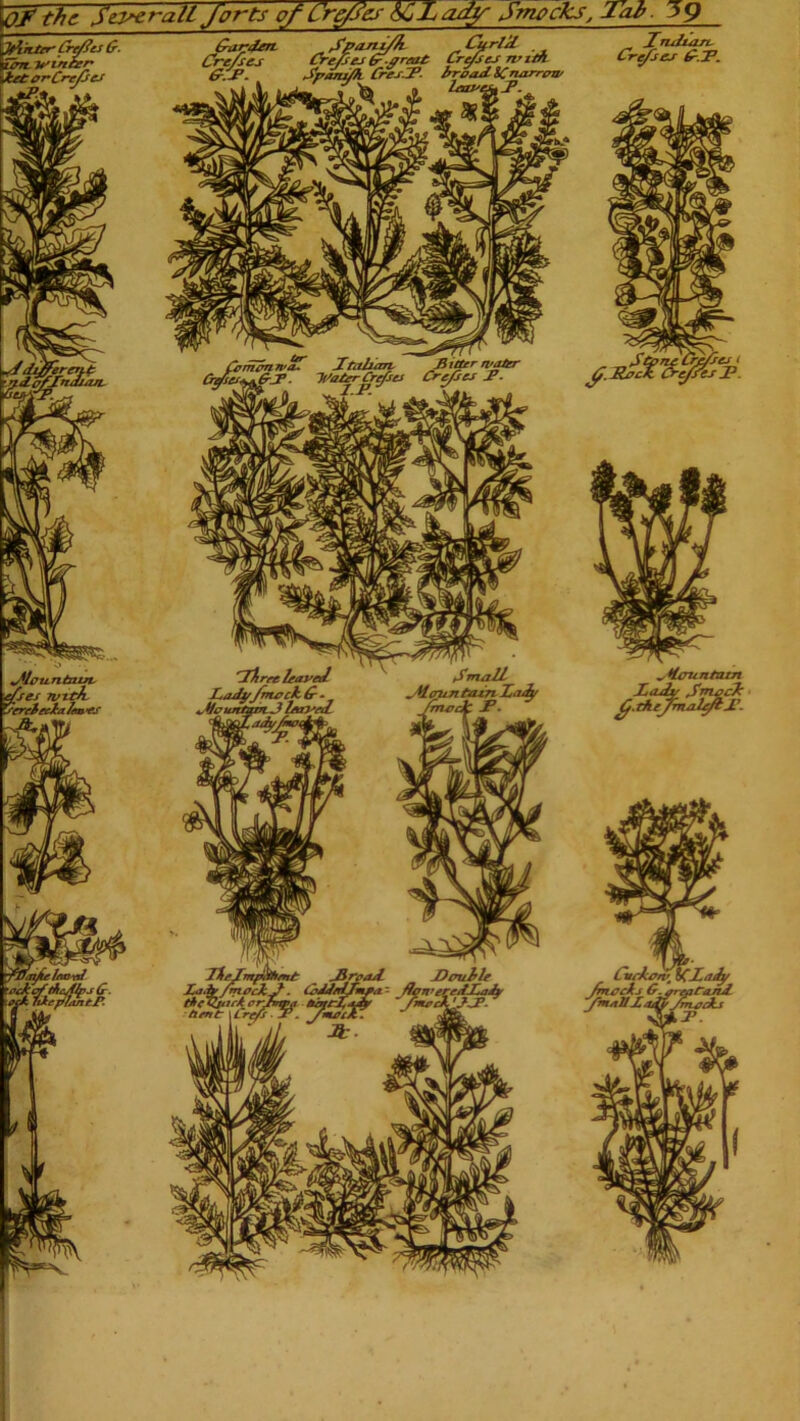 OF the Severall sorts of Cresses & Lady Smocks, Tab. 39
Winter Cresses G.
winter
or Cresses
P.
Garden
Cresses
G. P.
Spanish
Cresses G. great
Spanish Cres. P.
Curl'd
Cresses with
broad & narrow
leaves P.
Indian
Cresses G. P.
A different
of Indian
P.
Common wat^er
Cresses G. P.
Italian
Water Cresses
I. P.
Bitter water
Cresses P.
Stone Cresses
G. Rock Cresses P.
Mountain
with
leaves
Three leaved
Lady smock G.
Mountain 3 leaved
Lady smock
P.
Small
Mountain Lady
smock P.
Mountain
Lady Smock
G. the smalest P.
leaved
of the Alps G.
like plant P.
The Impatient
Lady smock J.
the Quick or Impa
tient Cress P.
Broad
Codded Impa-
tient Lady
smock.
Double
flowered Lady
smock J. P.
Cuckow, & Lady
smocks G. great and
small Lady smocks
P.